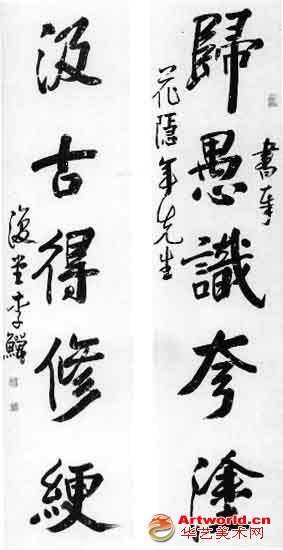 歸愚識夸塗
書奉
花隱年先生
汲古得修綆
復堂李鱓
Artworld.cn
华艺美术网